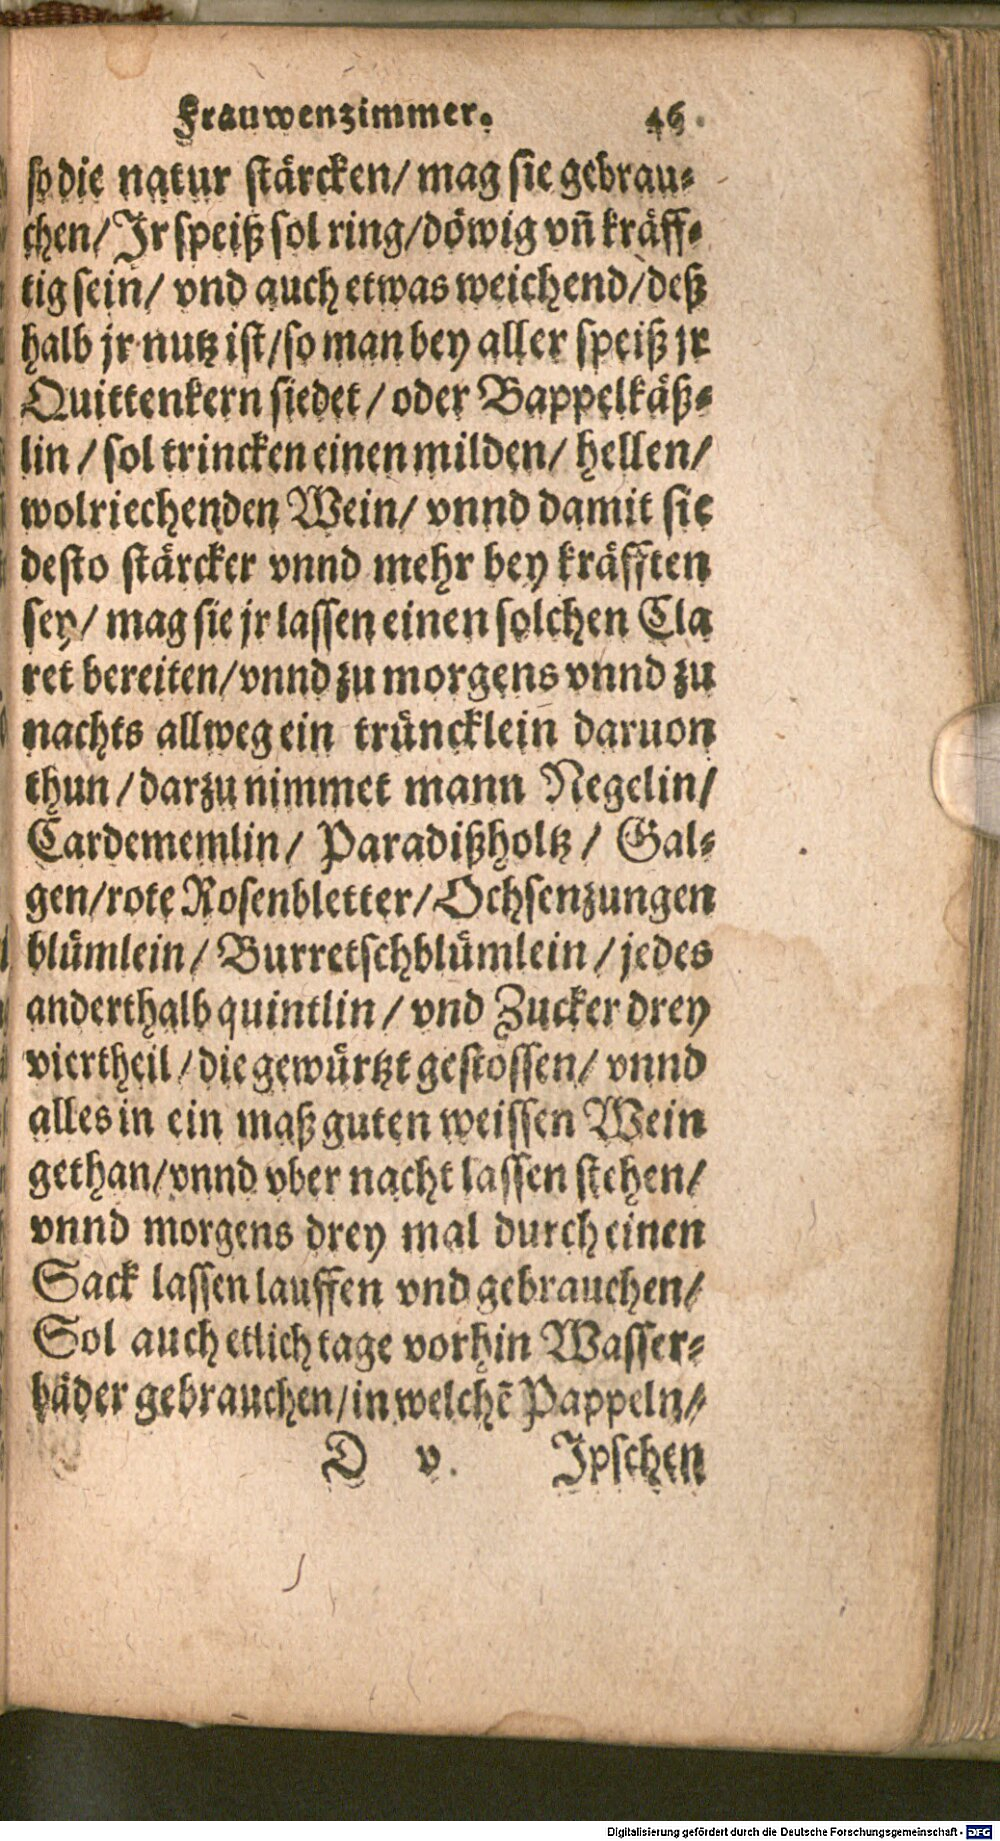 Frauwenzimmer. 46.
so die natur stärcken/ mag sie gebrau⸗
chen/ Jr speiß sol ring/ döwig vñ kräff⸗
tig sein/ vnd auch etwas weichend/ deß
halb jr nutz ist/ so man bey aller speiß jr
Quittenkern siedet/ oder Bappelkäß⸗
lin/ sol trincken einen milden/ hellen/
wolriechenden Wein/ vnnd damit sie
desto stärcker vnnd mehr bey kräfften
sey/ mag sie jr lassen einen solchen Cla
ret bereiten/ vnnd zu morgens vnnd zu
nachts allweg ein trüncklein daruon
thun/ darzu nimmet mann Negelin/
Cardememlin/ Paradißholtz/ Gal⸗
gen/ rote Rosenbletter/ Ochsenzungen
blümlein/ Burretschblümlein/ jedes
anderthalb quintlin/ vnd Zucker drey
viertheil/ die gewürtzt gestossen/ vnnd
alles in ein maß guten weissen Wein
gethan/ vnnd vber nacht lassen stehen/
vnnd morgens drey mal durch einen
Sack lassen lauffen vnd gebrauchen/
Sol auch etlich tage vorhin Wasser⸗
bäder gebrauchen/ in welchē Pappeln/
D v. Jpschen
Digitalisierung gefördert durch die Deutsche Forschungsgemeinschaft - DFG